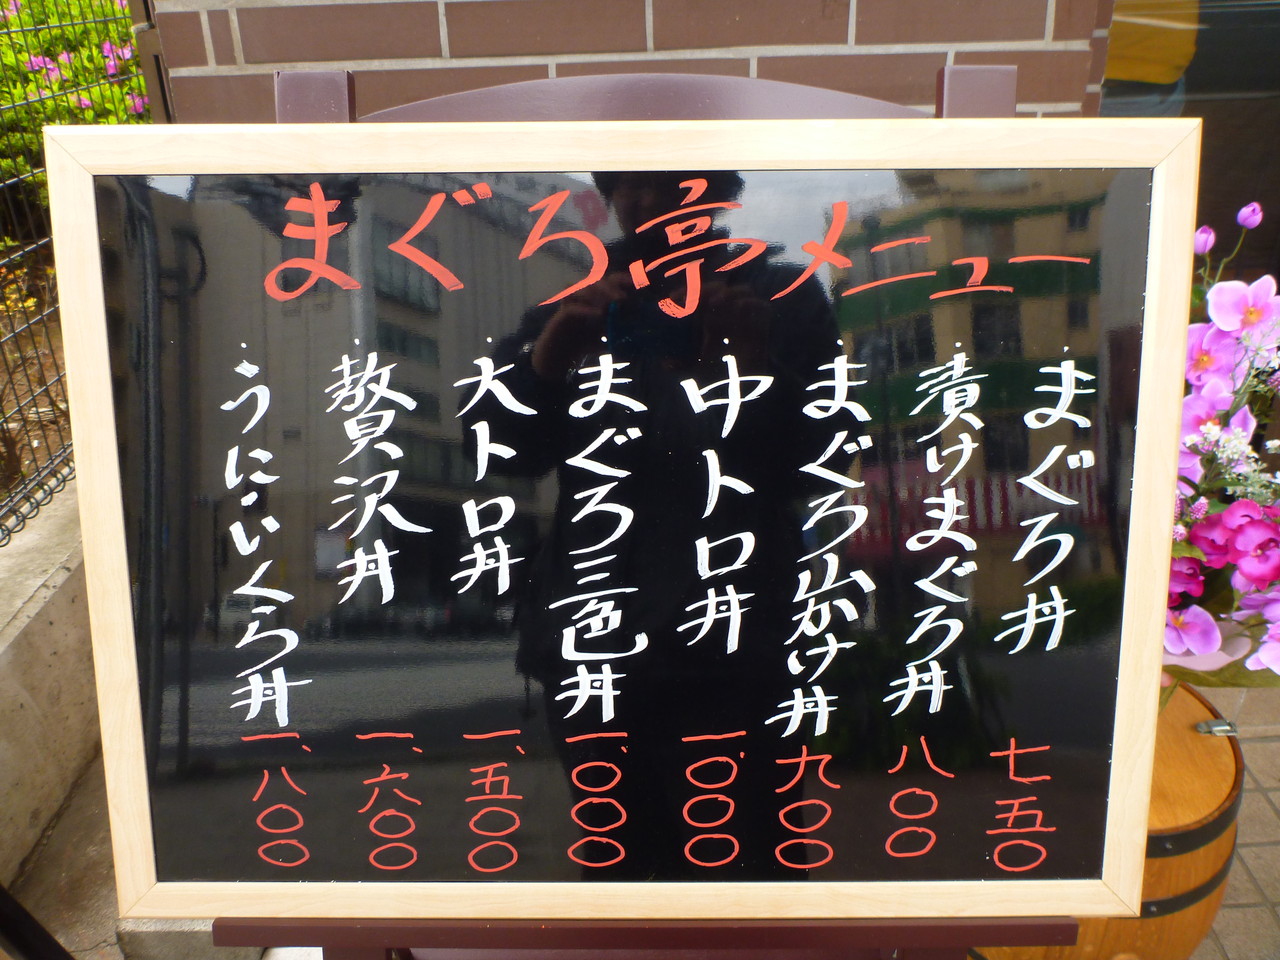 まぐろ亭メニュー
・まぐろ丼 七五〇
・漬けまぐろ丼 八〇〇
・まぐろ山かけ丼 九〇〇
・中トロ丼 一、〇〇〇
・まぐろ三色丼 一、〇〇〇
・大トロ丼 一、五〇〇
・贅沢丼 一、六〇〇
・うに・いくら丼 一、八〇〇